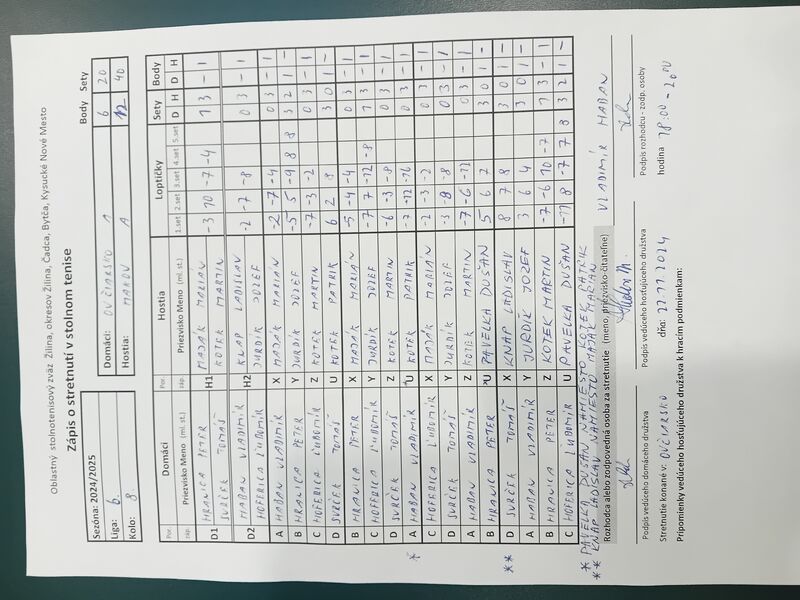 Oblastný stolnotenisový zväz Žilina, okresov Žilina, Čadca, Bytča, Kysucké Nové Mesto
Zápis o stretnutí v stolnom tenise
Sezóna: 2024/2025
Liga: 6.
Kolo: 8
Body Sety
Domáci: OVČIARSKO A 6 20
Hostia: MAKOV A 12 40
Domáci Hostia Loptičky Sety Body
Por. Priezvisko Meno (ml. st.) záp. Por. Priezvisko Meno (ml. st.) záp. 1.set 2.set 3.set 4.set 5.set D H D H
D1 HRANICA PETER H1 MAJÁK MARIÁN -3 10 -7 -4 1 3 - 1
SURČEK TOMÁŠ KOTEK MARTIN
D2 HABAN VLADIMÍR H2 KNAP LADISLAV -2 -7 -8 0 3 - 1
HOFERICA ĽUBOMÍR JURDÍK JOZEF
A HABAN VLADIMÍR X MAJÁK MARIÁN -2 -7 -4 0 3 - 1
B HRANICA PETER Y JURDÍK JOZEF -5 5 -9 8 8 3 2 1 -
C HOFERICA ĽUBOMÍR Z KOTEK MARTIN -7 -3 -2 0 3 - 1
D SURČEK TOMÁŠ U KOTEK PATRIK 6 2 3 0 1 -
B HRANICA PETER X MAJÁK MARIÁN -5 -4 -4 0 3 - 1
C HOFERICA ĽUBOMÍR Y JURDÍK JOZEF 7 -12 -8 1 3 - 1
D SURČEK TOMÁŠ Z KOTEK MARTIN -6 -3 -8 0 3 - 1
* A HABAN VLADIMÍR U KOTEK PATRIK -12 0 3 - 1
C HOFERICA ĽUBOMÍR X MAJÁK MARIÁN -2 -3 -2 0 3 - 1
D SURČEK TOMÁŠ Y JURDÍK JOZEF -8 -8 0 3 - 1
A HABAN VLADIMÍR Z KOTEK MARTIN -7 -6 0 3 - 1
B HRANICA PETER *U PAVELKA DUŠAN 5 6 7 3 0 1 -
** D SURČEK TOMÁŠ X KNAP LADISLAV 8 7 8 3 0 1 -
A HABAN VLADIMÍR Y JURDÍK JOZEF 3 6 4 3 0 1 -
B HRANICA PETER Z KOTEK MARTIN -7 -6 10 -7 1 3 - 1
C HOFERICA ĽUBOMÍR U PAVELKA DUŠAN -11 8 -7 7 8 3 2 1 -
* PAVELKA DUŠAN NAMIESTO KOTEK PATRIK
** KNAP LADISLAV NAMIESTO MAJÁK MARIÁN
Rozhodca alebo zodpovedná osoba za stretnutie (meno, priezvisko čitateľne) VLADIMÍR HABAN
Podpis vedúceho domáceho družstva Podpis vedúceho hosťujúceho družstva Podpis rozhodcu - zodp. osoby
Stretnutie konané v: OVČIARSKO dňa: 22.11.2024 hodina 18:00 - 20:00
Pripomienky vedúceho hosťujúceho družstva k hracím podmienkam: